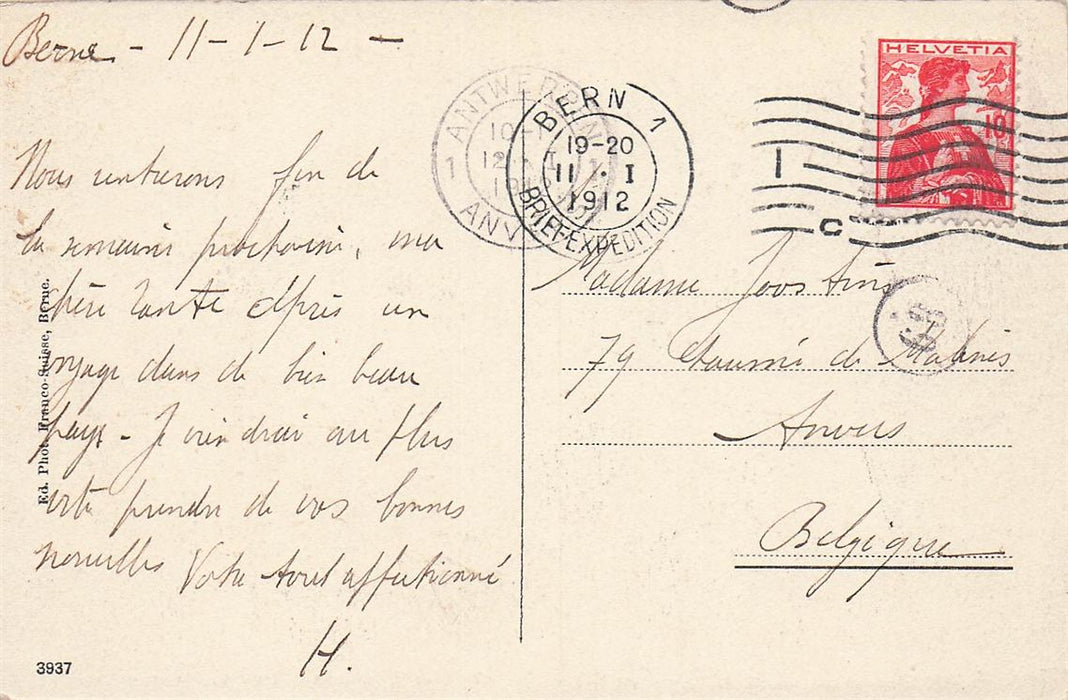 Berne - 11-1-12 -
Nous rentrerons fin de
la semaine prochaine, ma
chère tante après un
voyage dans de bien beau
pays - Je viendrai au plus
vite prendre de vos bonnes
nouvelles Votre tout affectionné
H.
Ed. Photo Franco-Suisse, Berne.
3937
ANTWERPEN
1
ANV
BERN 1
19-20
11 · I
1912
BRIEFEXPEDITION
HELVETIA
10
Madame Joostens
79 Chaussée de Malines
Anvers
Belgique